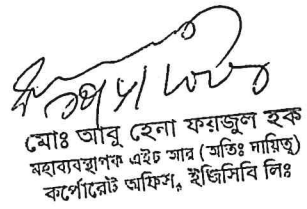 মোঃ আবু হেনা ফয়জুল হক
মহাব্যবস্থাপক এইচ আর (অতিঃ দায়িত্ব)
কর্পোরেট অফিস, ইজিসিবি লিঃ